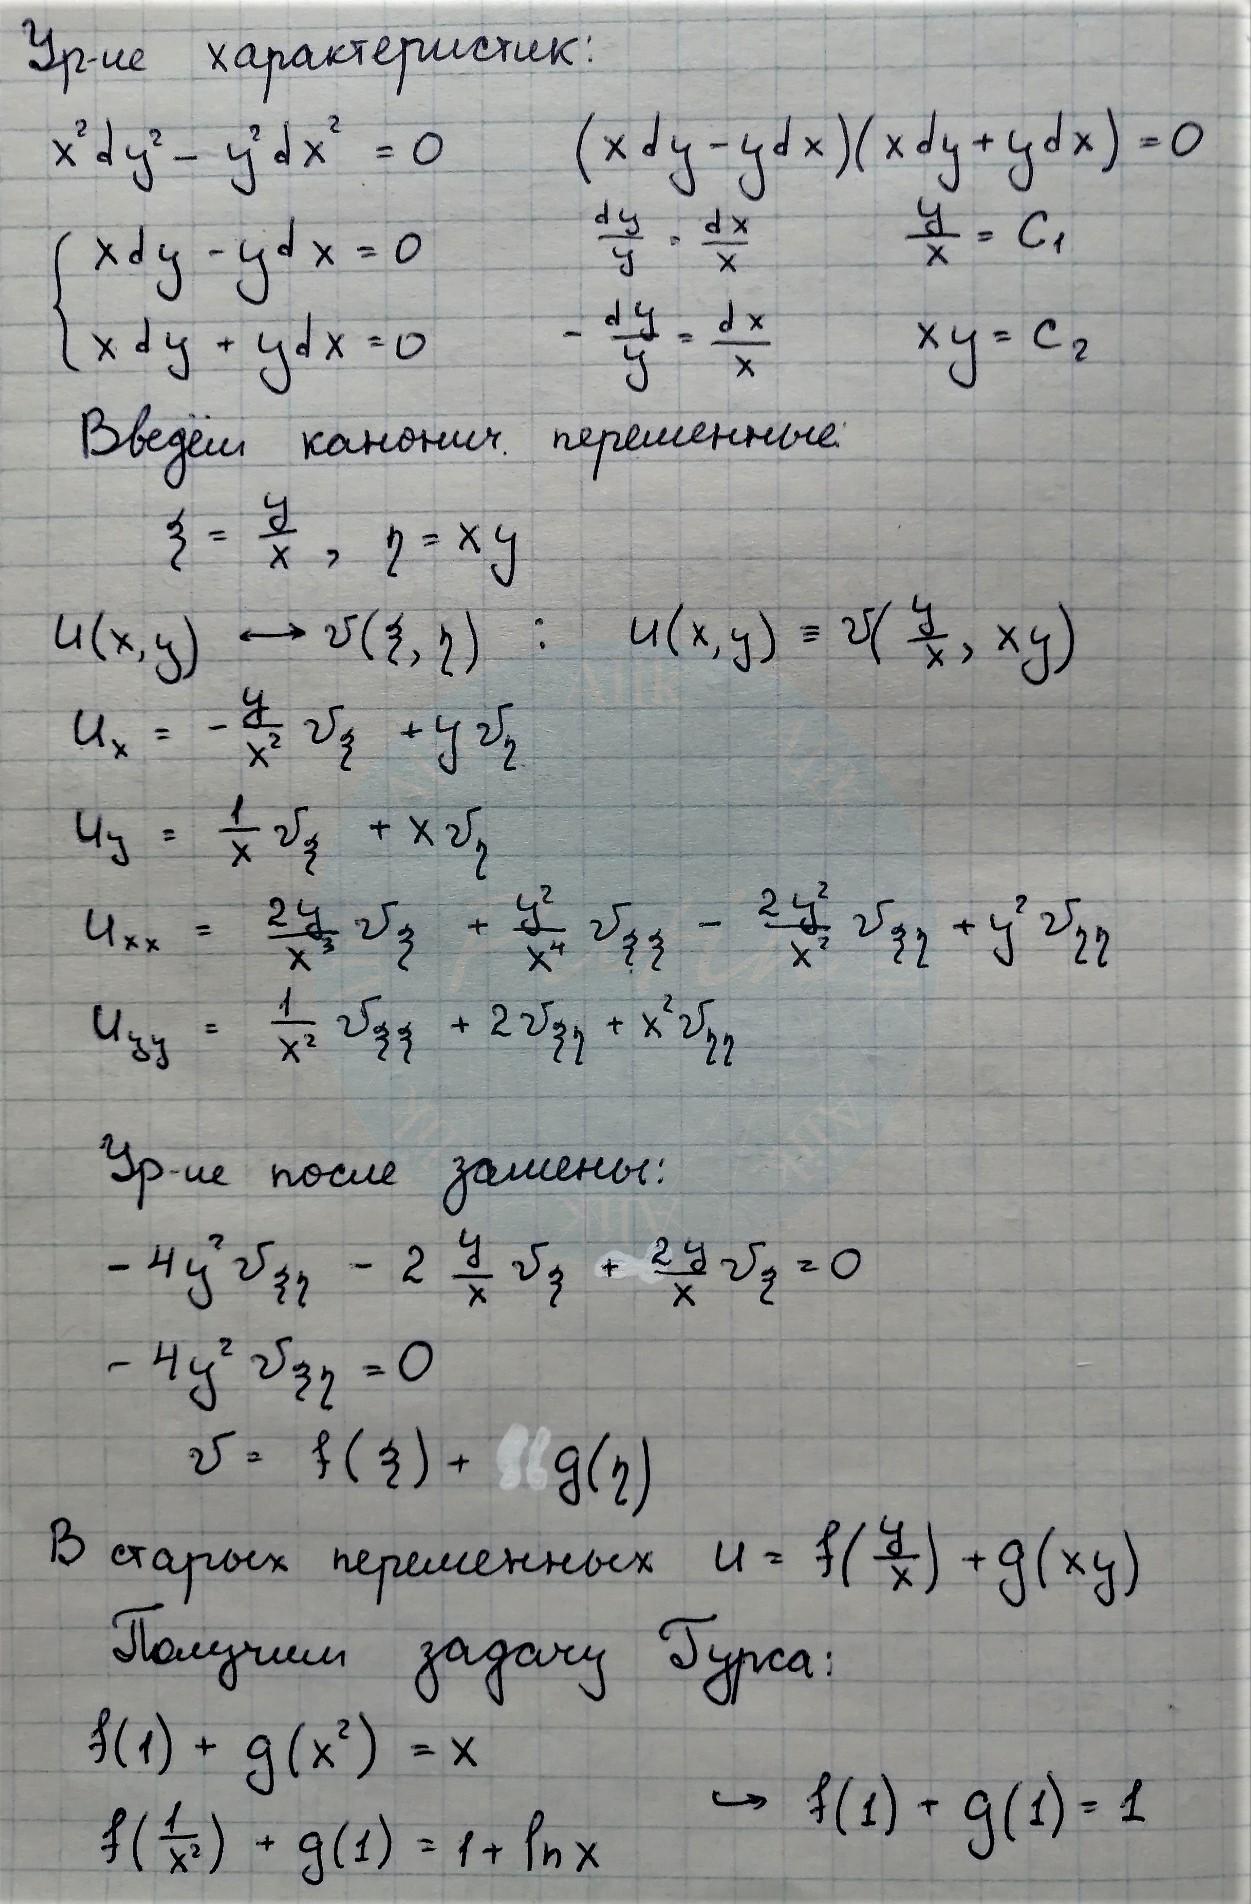 Ур-ие характеристик:
x²dy² − y²dx² = 0 (xdy − ydx)(xdy + ydx) = 0
{ xdy − ydx = 0 dy/y = dx/x y/x = C₁
xdy + ydx = 0 −dy/y = dx/x xy = C₂
Введём канонич. переменные:
ξ = y/x, η = xy
u(x,y) ⟷ v(ξ,η) : u(x,y) ≡ v(y/x, xy)
uₓ = −y/x² v_ξ + y v_η
u_y = 1/x v_ξ + x v_η
u_xx = 2y/x³ v_ξ + y²/x⁴ v_ξξ − 2y²/x² v_ξη + y² v_ηη
u_yy = 1/x² v_ξξ + 2v_ξη + x² v_ηη
Ур-ие после замены:
−4y² v_ξη − 2 y/x v_ξ + 2y/x v_ξ = 0
−4y² v_ξη = 0
v = f(ξ) + g(η)
В старых переменных u = f(y/x) + g(xy)
Получим задачу Гурса:
f(1) + g(x²) = x
f(1/x²) + g(1) = 1 + ln x ↪ f(1) + g(1) = 1